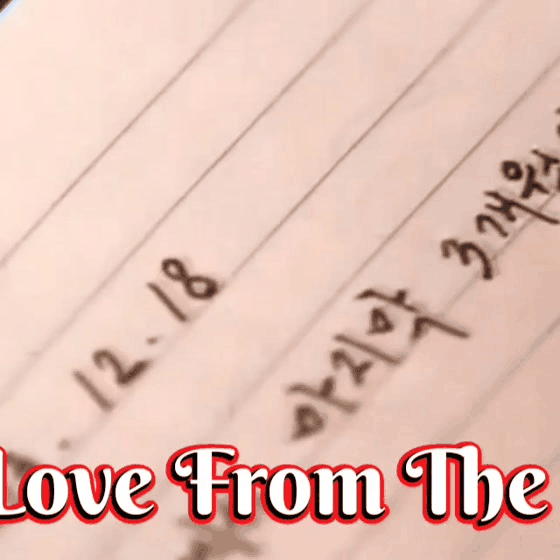 12.18
마지막 3개월
Love From The